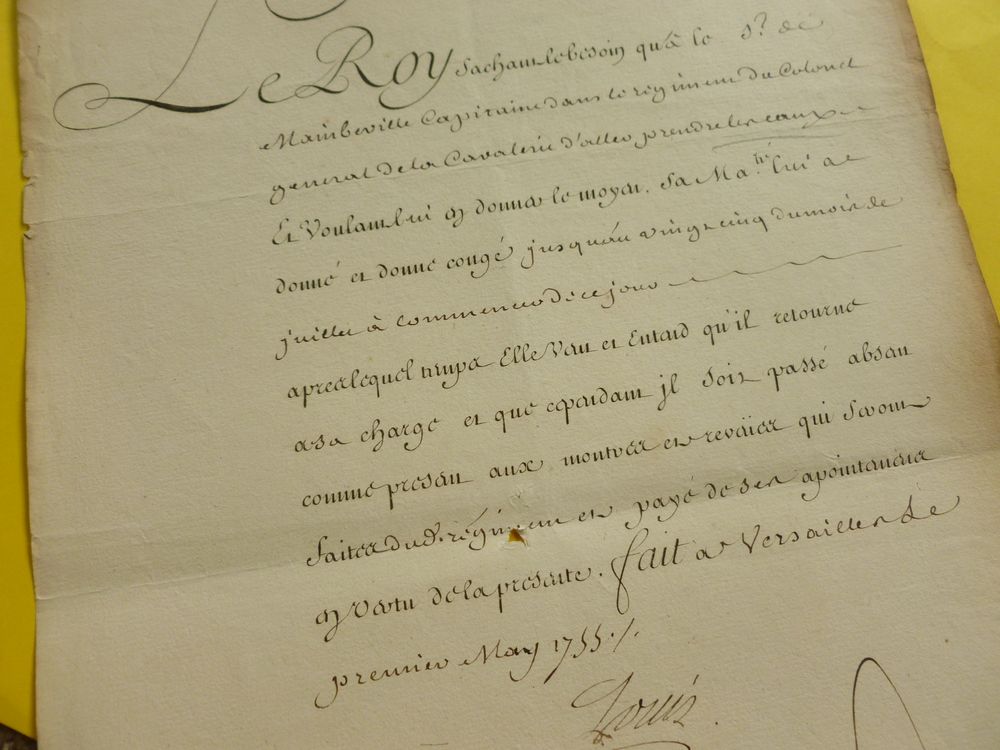 Le Roy Sachant le besoin qu'à le S.r de
Mainbeville Capitaine dans le régiment du Colonel
general de la Cavalerie d'aller prendre les eaux
Et Voulant lui en donner le moyen. Sa Ma.té lui a
donné et donne congé jusqu'au vingt cinq du mois de
juillet à commencer de ce jour
apres lequel temps Elle Veut et Entend qu'il retourne
a sa charge et que cependant jl soit passé absent
comme present aux montres et reveües qui seront
faites dud. régiment et payé de ses apointemens
en vertu de la presente. fait a Versailles Le
premier May 1755 ./.
Louis.